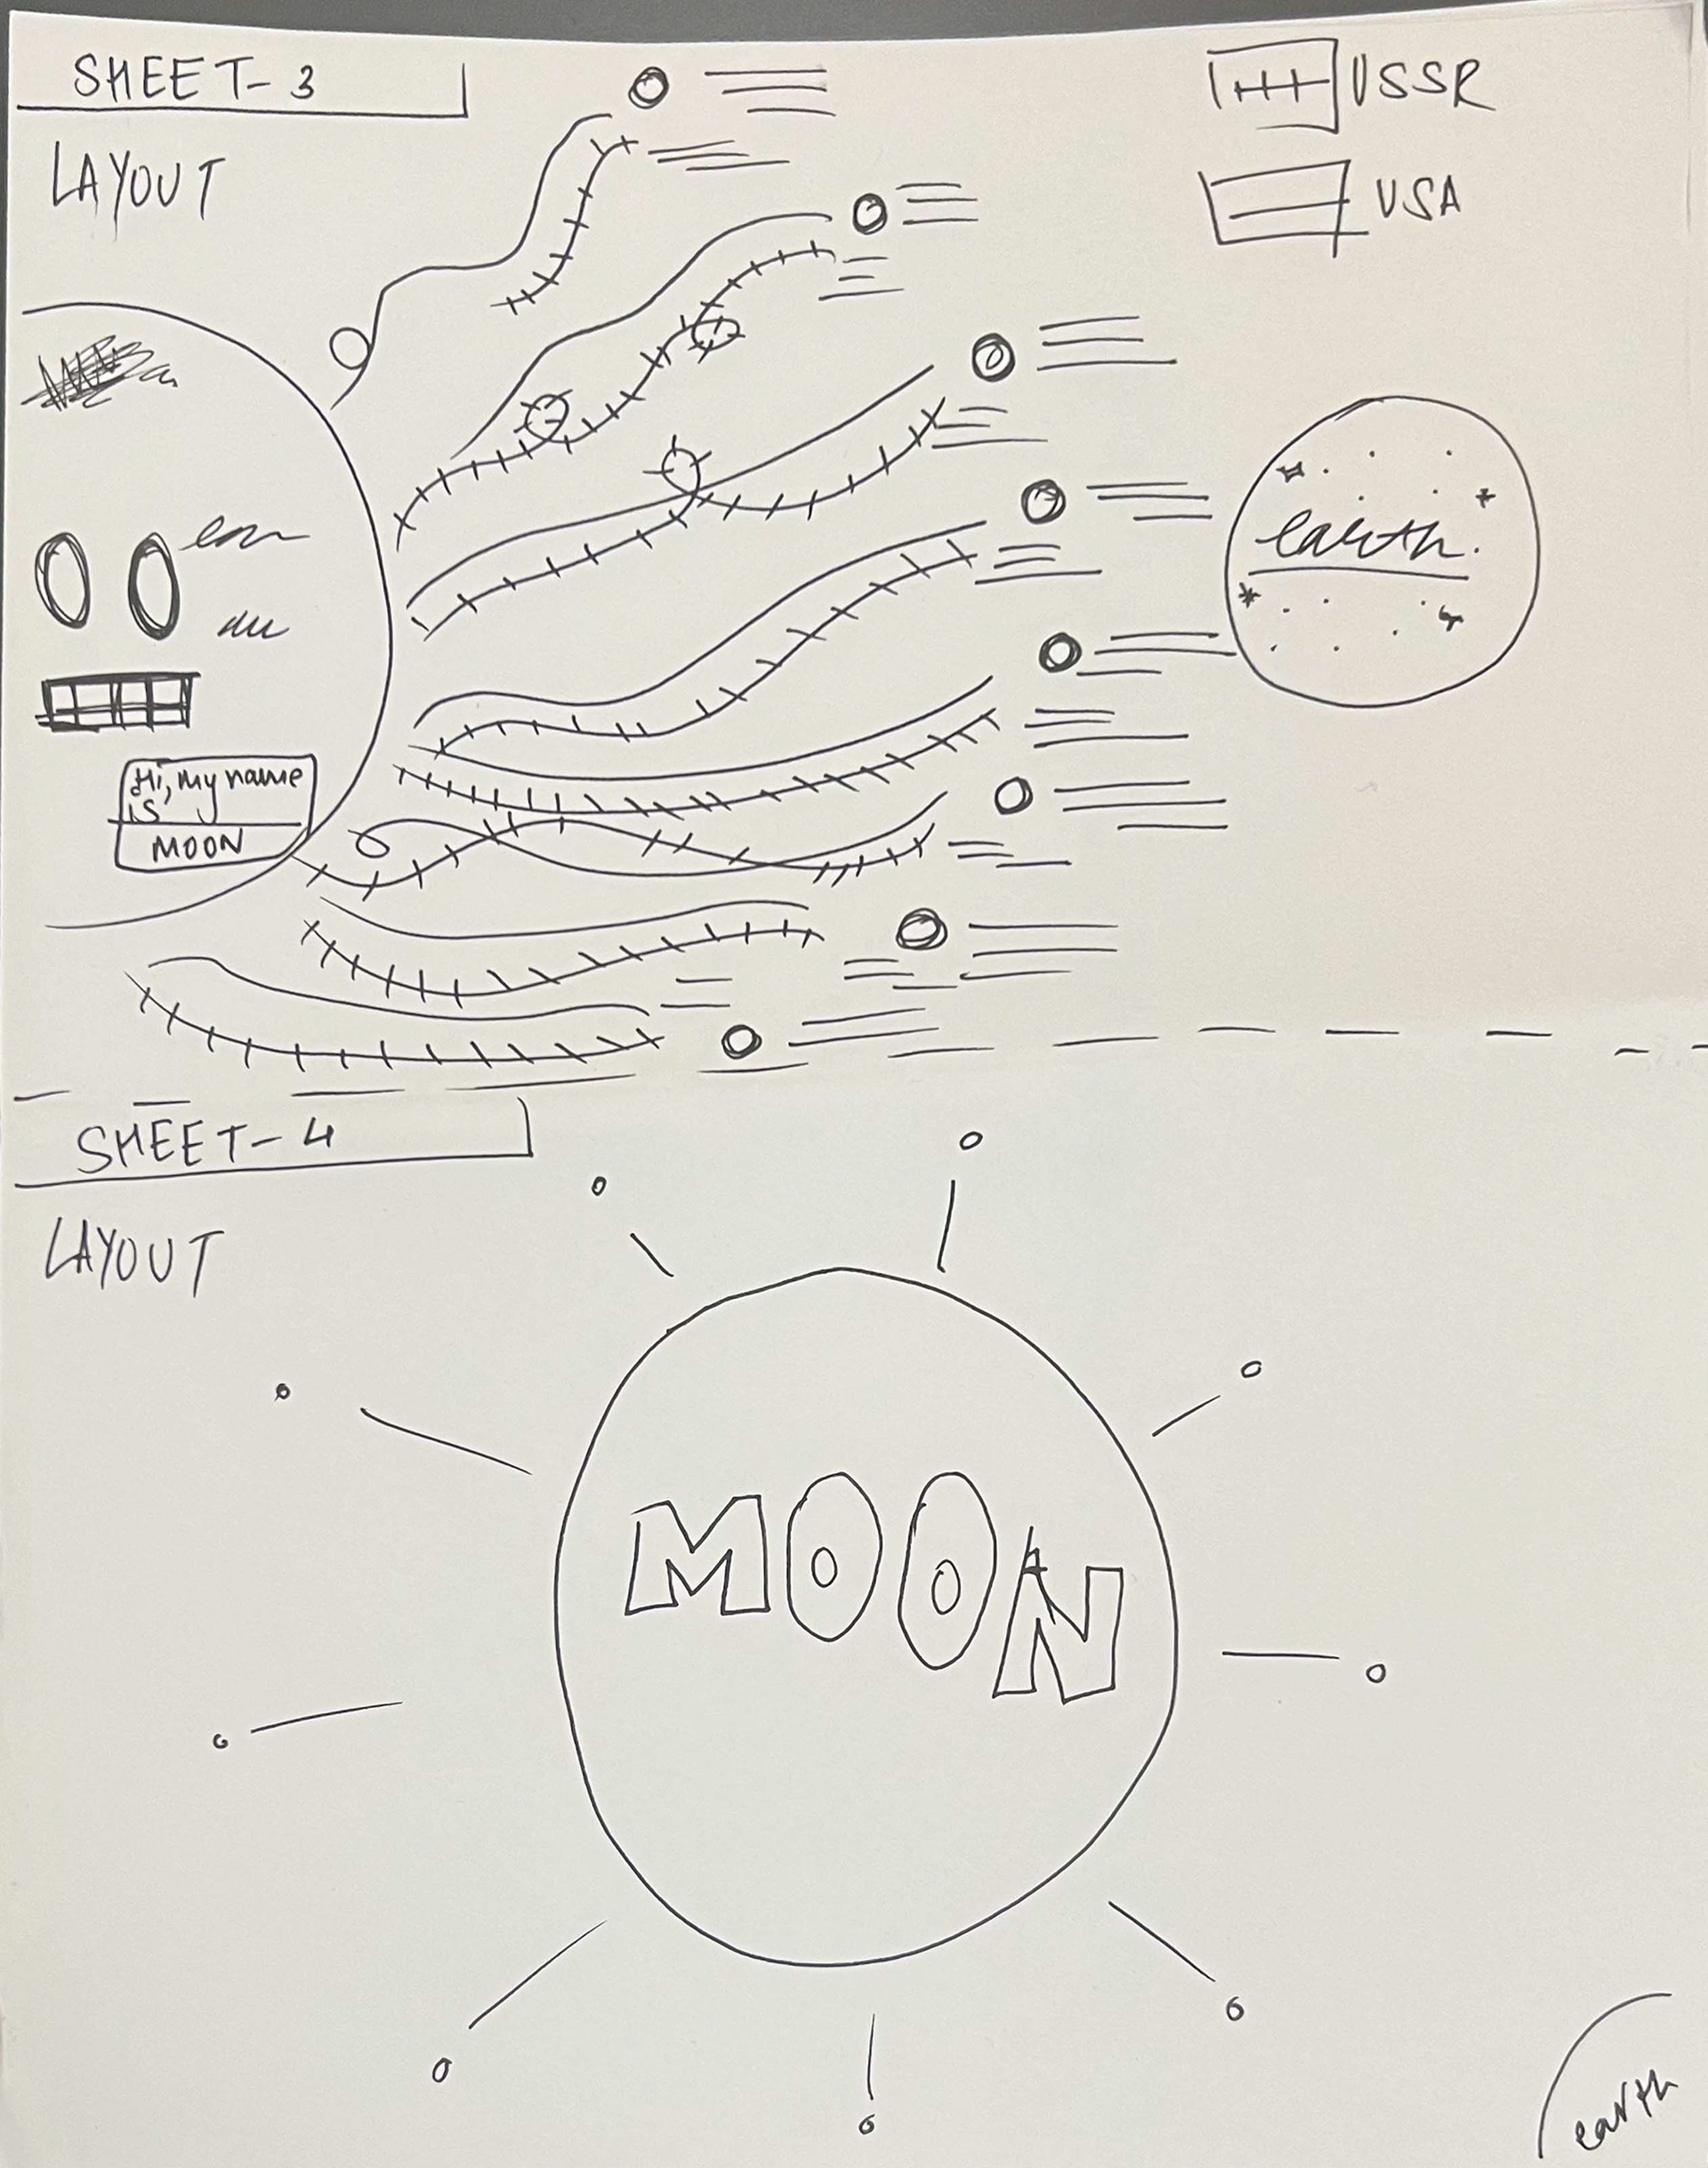 SHEET-3
LAYOUT
USSR
USA
earth.
Hi, my name
is
MOON
SHEET-4
LAYOUT
MOON
earth